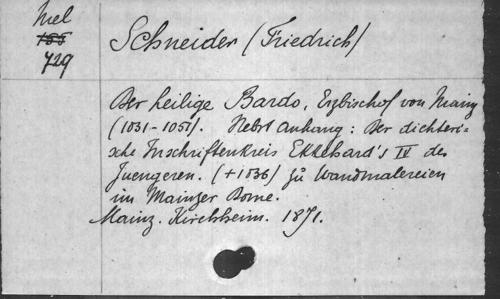 Mel
155
729
Schneider (Friedrich)
Der heilige Bardo, Erzbischof von Mainz
(1031-1051). Nebst Anhang: Der dichteri-
sche Inschriftenkreis Ekkehard's IV des
Juengeren. (+1036) zu Wandmalereien
im Mainzer Dome.
Mainz. Kirchheim. 1871.